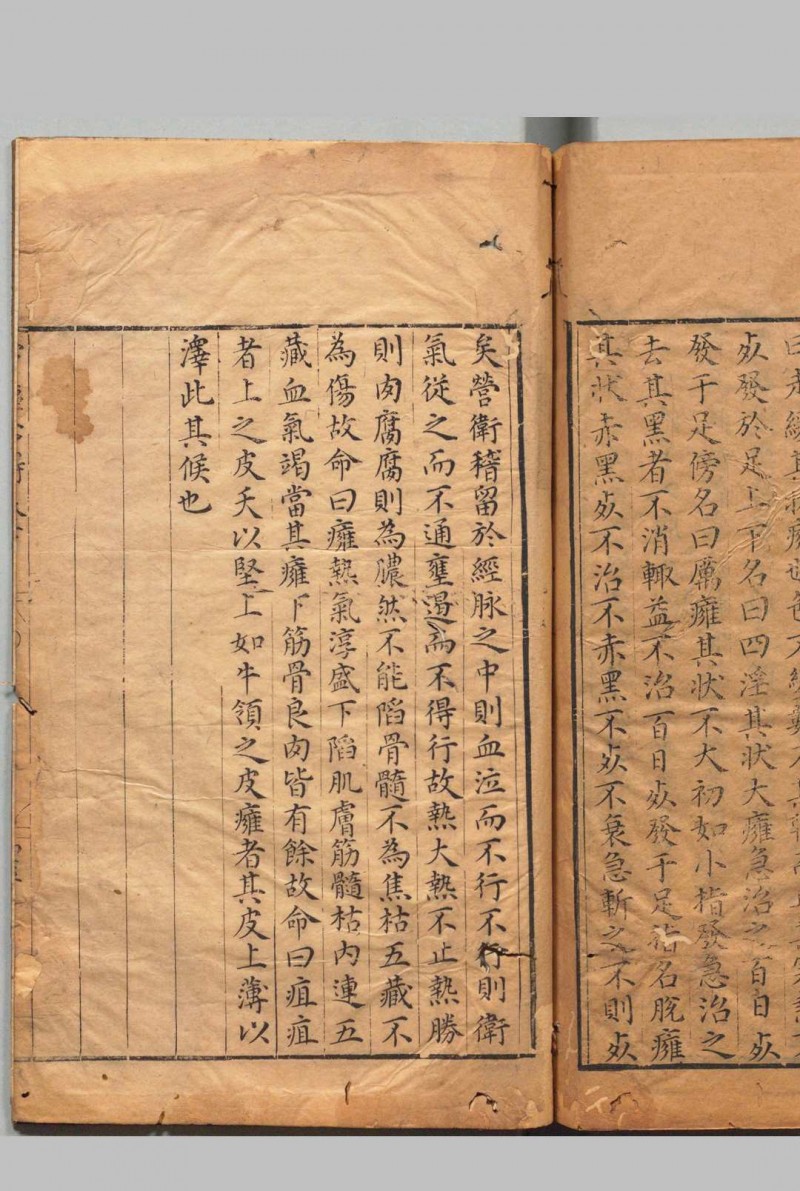 發於足上下名曰四淫其狀大癰急治之百日死
發于足傍名曰厲癰其狀不大初如小指發急治之
去其黑者不消輙益不治百日死發于足指名脫癰
其狀赤黑死不治不赤黑不死不衰急斬之不則死
矣營衛稽留於經脉之中則血泣而不行不行則衛
氣從之而不通壅遏而不得行故熱大熱不止熱勝
則肉腐腐則為膿然不能陷骨髓不為焦枯五藏不
為傷故命曰癰熱氣淳盛下陷肌膚筋髓枯内連五
藏血氣竭當其癰下筋骨良肉皆有餘故命曰疽疽
者上之皮夭以堅上如牛領之皮癰者其皮上薄以
澤此其候也